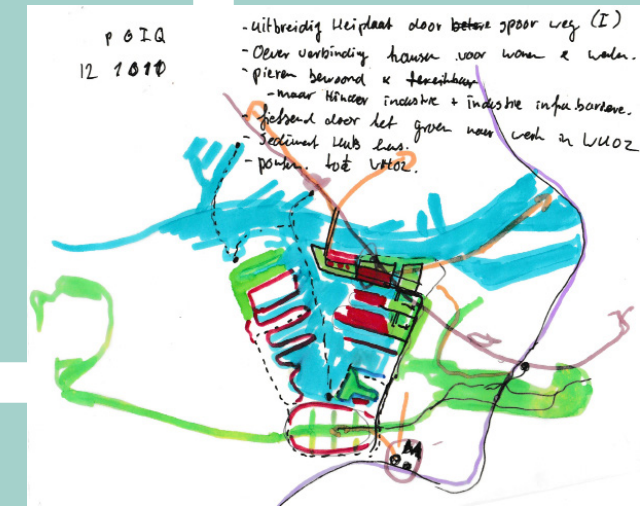 P O I Q
12 1010
- uitbreidig Heiplaat door betere spoor weg (I)
- Oever verbinding hausen voor wonen & werken.
- pieren bewoond &
- maar Hinder industrie + industrie infra barriere.
- fietsend door het groen naar werk in WHOZ
- Sediment Hub
- ponten tot WHOZ.
M